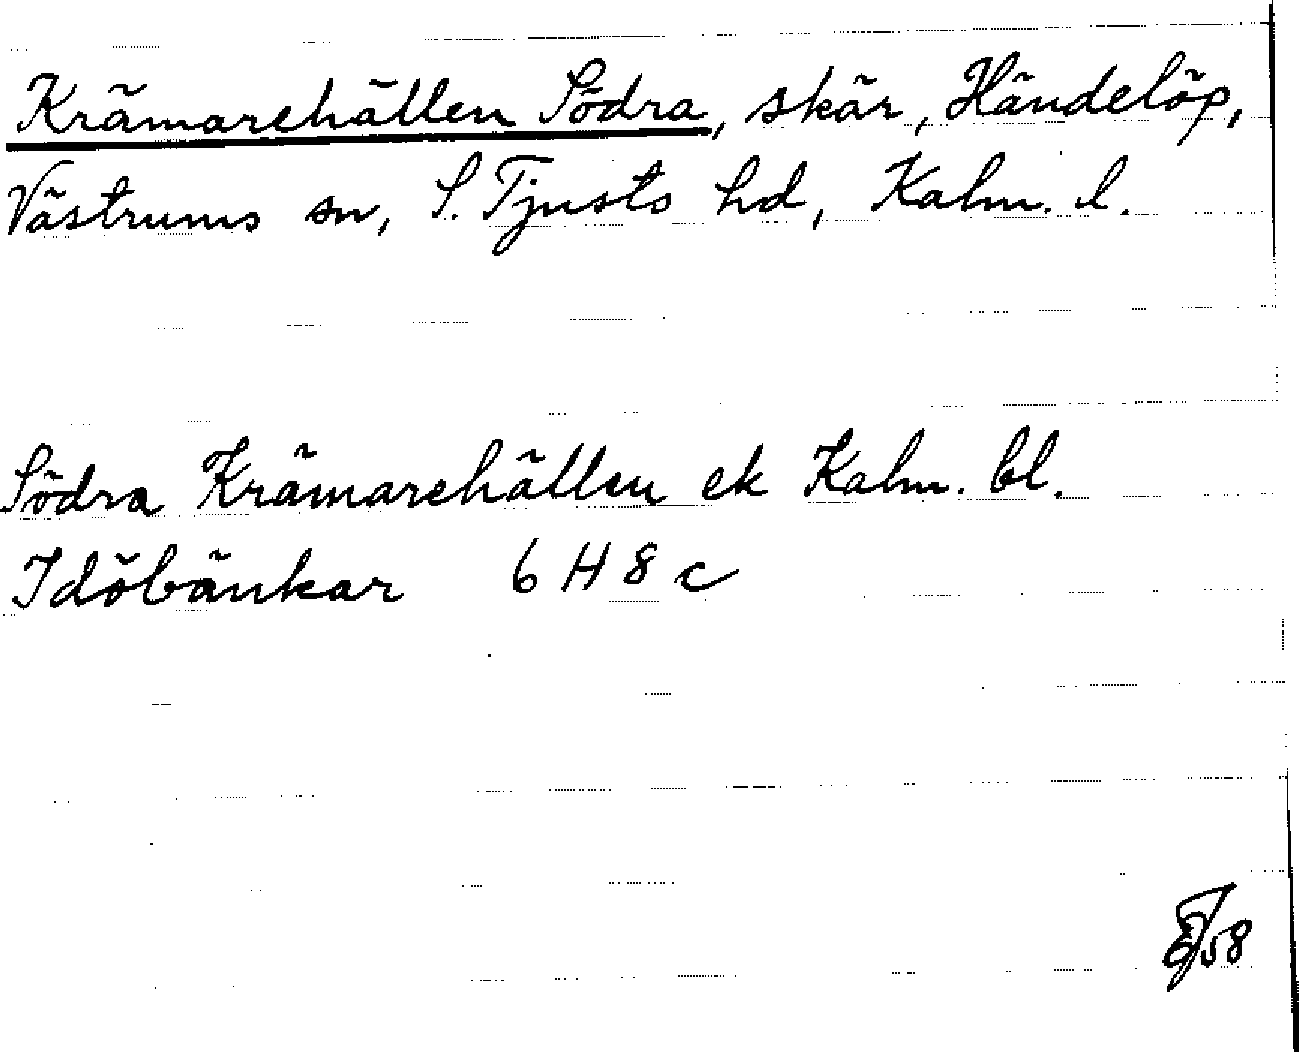 Krämarehällen Södra, skär, Händelöp,
Västrums sn, S. Tjusts hd, Kalm. l.
Södra Krämarehällen ek Kalm. bl.
Idöbänkar 6 H 8 c
58